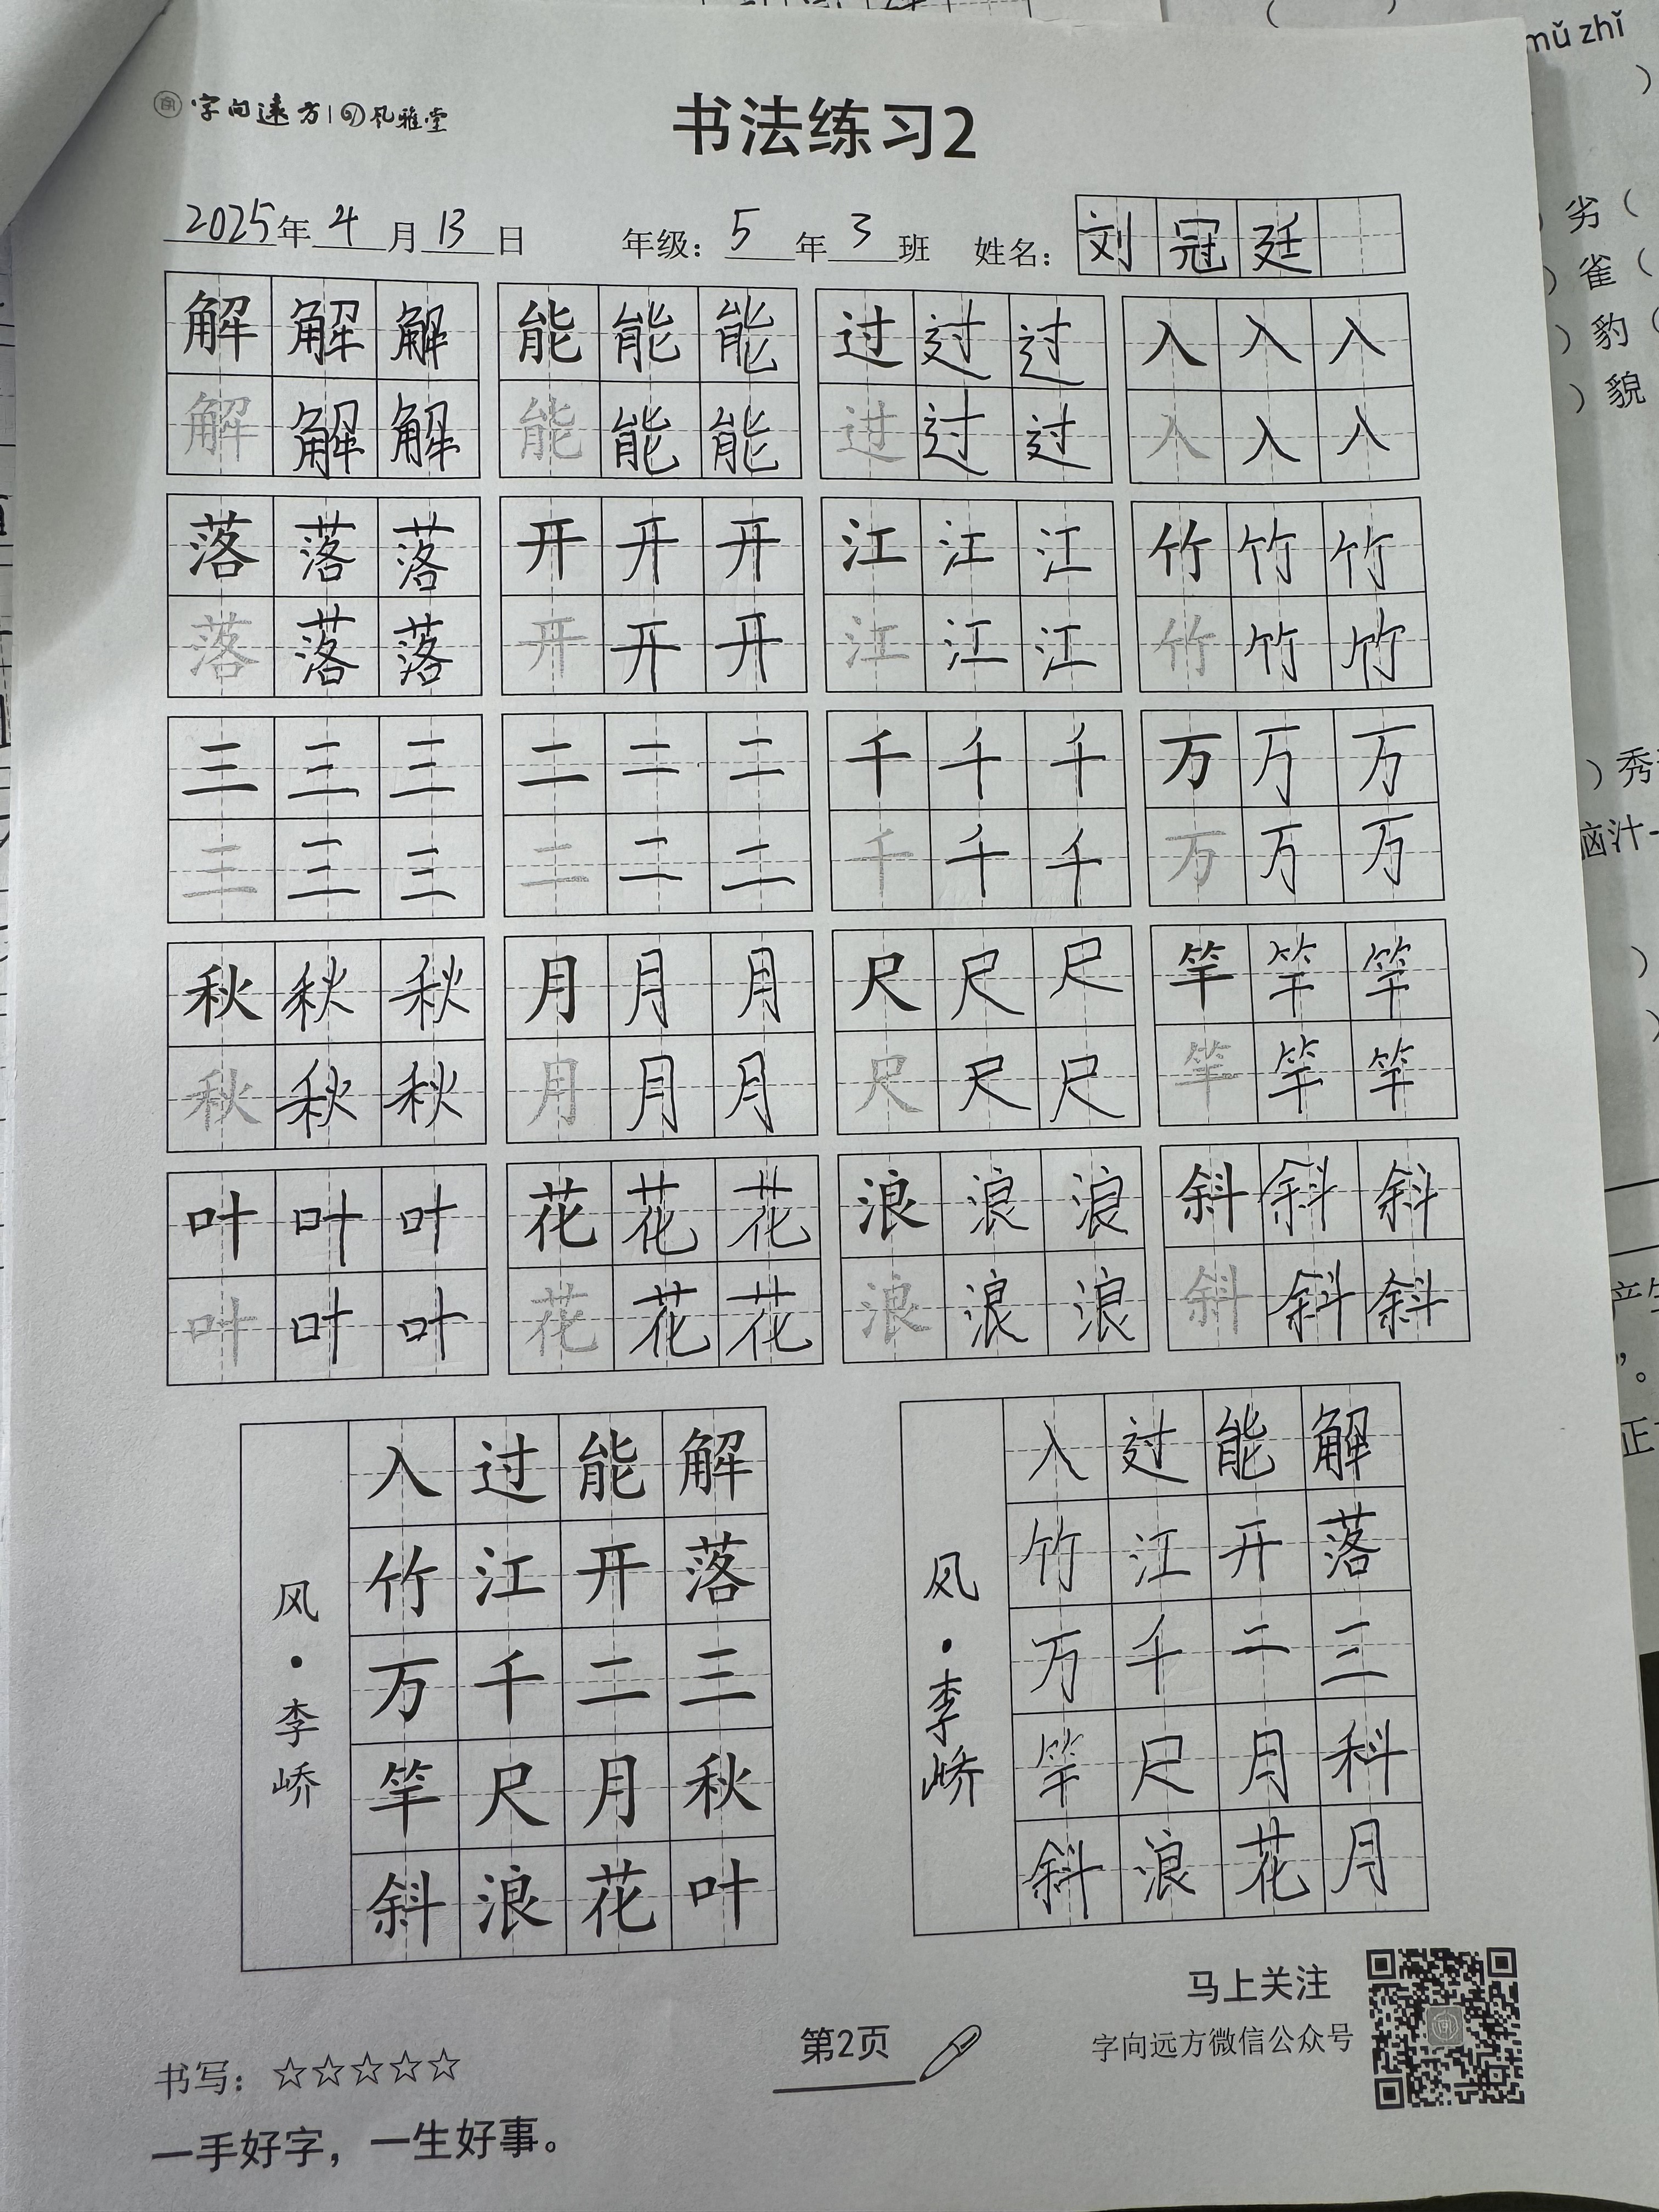 字向远方 风雅堂
书法练习2
2025年4月13日 年级：5年3班 姓名：刘冠廷
解解解 能能能 过过过 入入入
解解解 能能能 过过过 入入入
落落落 开开开 江江江 竹竹竹
落落落 开开开 江江江 竹竹竹
三三三 二二二 千千千 万万万
三三三 二二二 千千千 万万万
秋秋秋 月月月 尺尺尺 竿竿竿
秋秋秋 月月月 尺尺尺 竿竿竿
叶叶叶 花花花 浪浪浪 斜斜斜
叶叶叶 花花花 浪浪浪 斜斜斜
解落三秋叶
能开二月花
过江千尺浪
入竹万竿斜
风·李峤
解落三科月
能开二月花
过江千尺浪
入竹万竿斜
风·李峤
马上关注
字向远方微信公众号
第2页
书写：☆☆☆☆☆
一手好字，一生好事。
mǔ zhǐ
劣（
雀（
豹（
）貌
）秀
脑汁
正